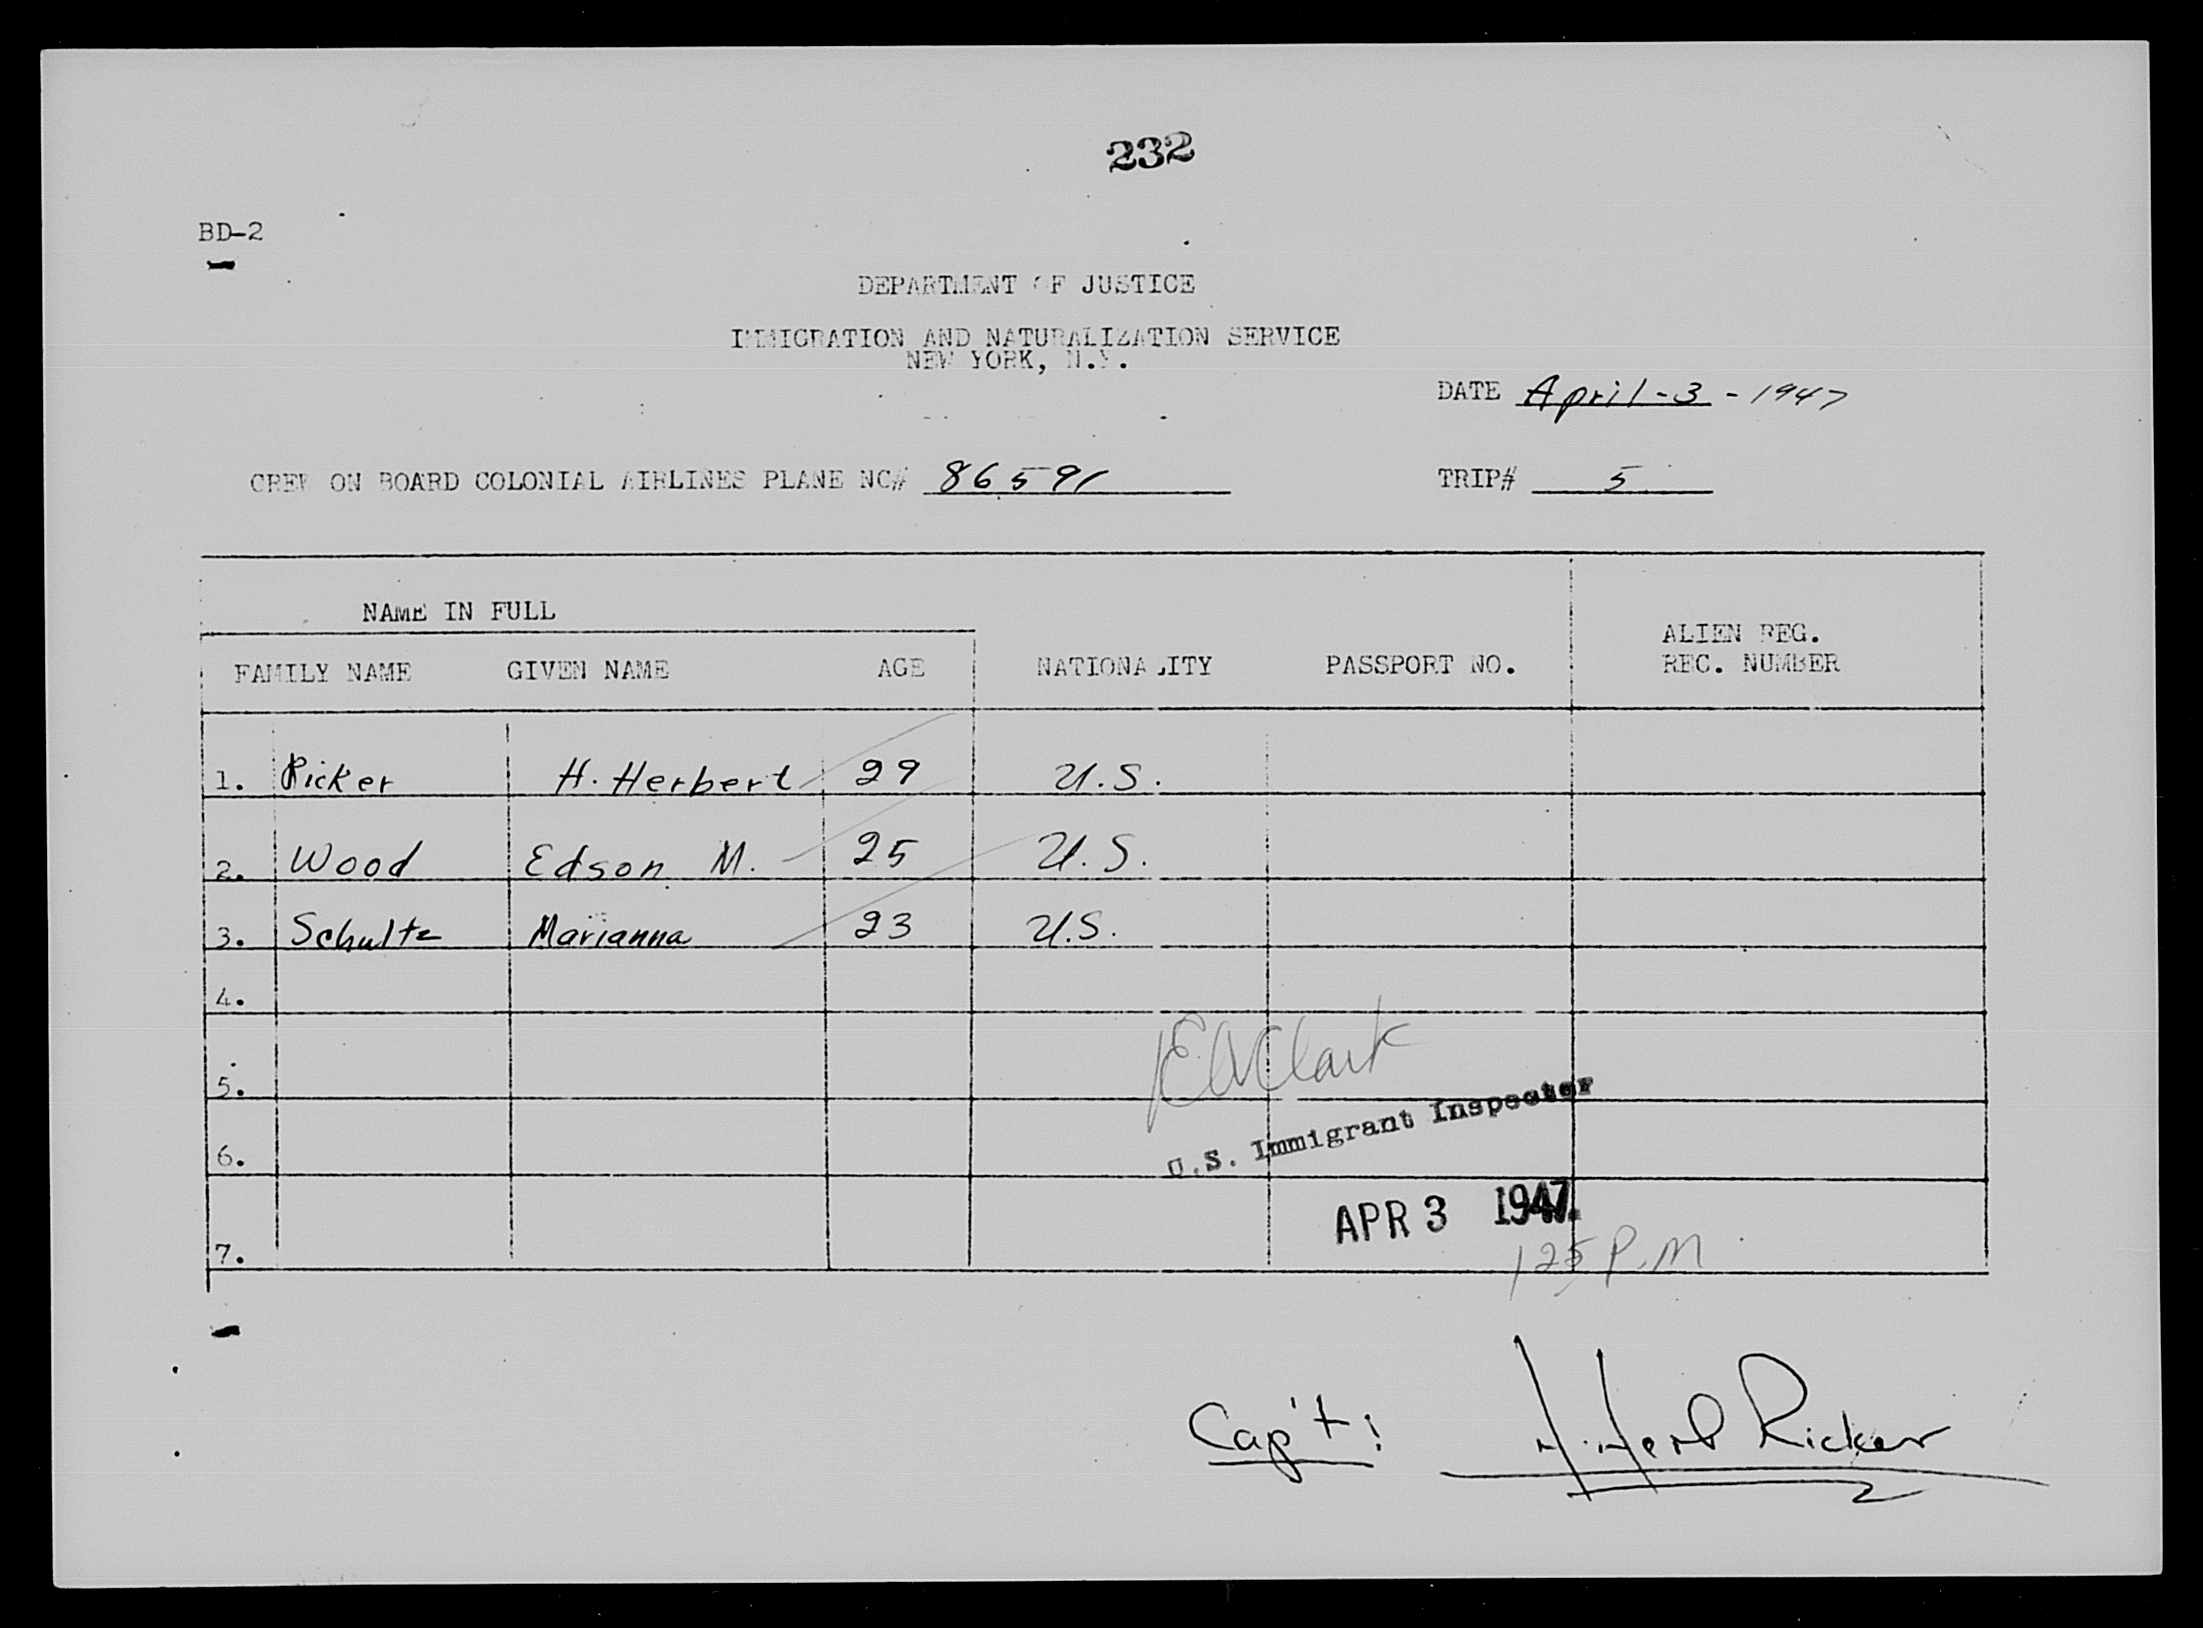 232
BD-2
DEPARTMENT OF JUSTICE
IMMIGRATION AND NATURALIZATION SERVICE
NEW YORK, N.Y.
DATE April-3-1947
CREW ON BOARD COLONIAL AIRLINES PLANE NC# 86591 TRIP# 5
NAME IN FULL
FAMILY NAME GIVEN NAME AGE NATIONALITY PASSPORT NO. ALIEN REG. REC. NUMBER
1. Ricker H. Herbert 29 U.S.
2. Wood Edson M. 25 U.S.
3. Schultz Marianna 23 U.S.
4.
5.
6.
7.
Clark
U.S. Immigrant Inspector
APR 3 1947
125 P.M
Cap't: H. Herb Ricker